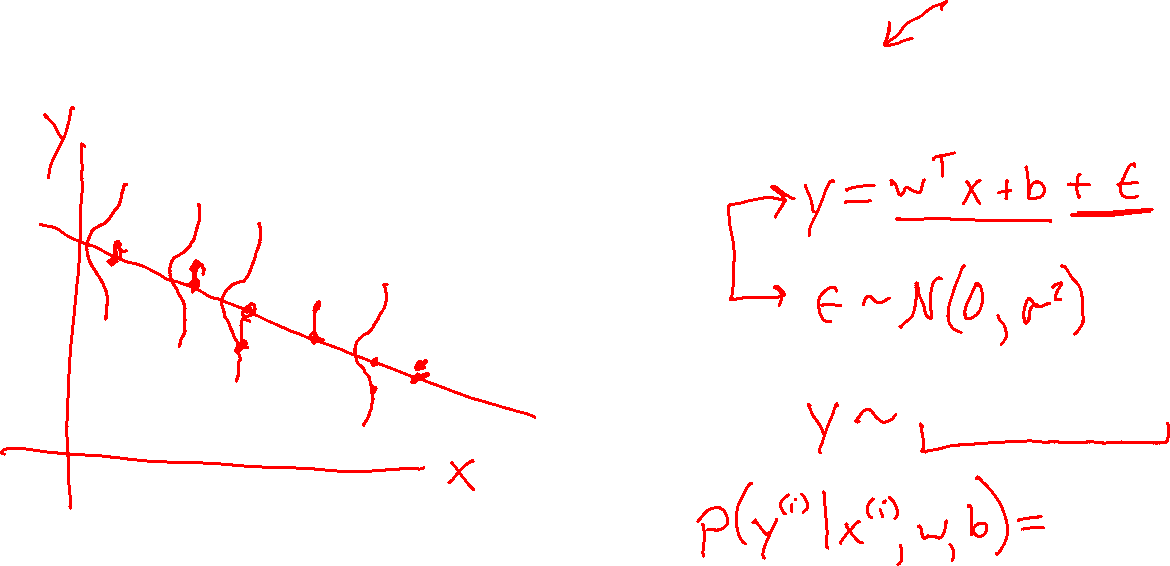 y
x
y = wᵀx + b + ϵ
ϵ ~ N(0, σ²)
y ~
p(y⁽ⁱ⁾|x⁽ⁱ⁾, w, b) =